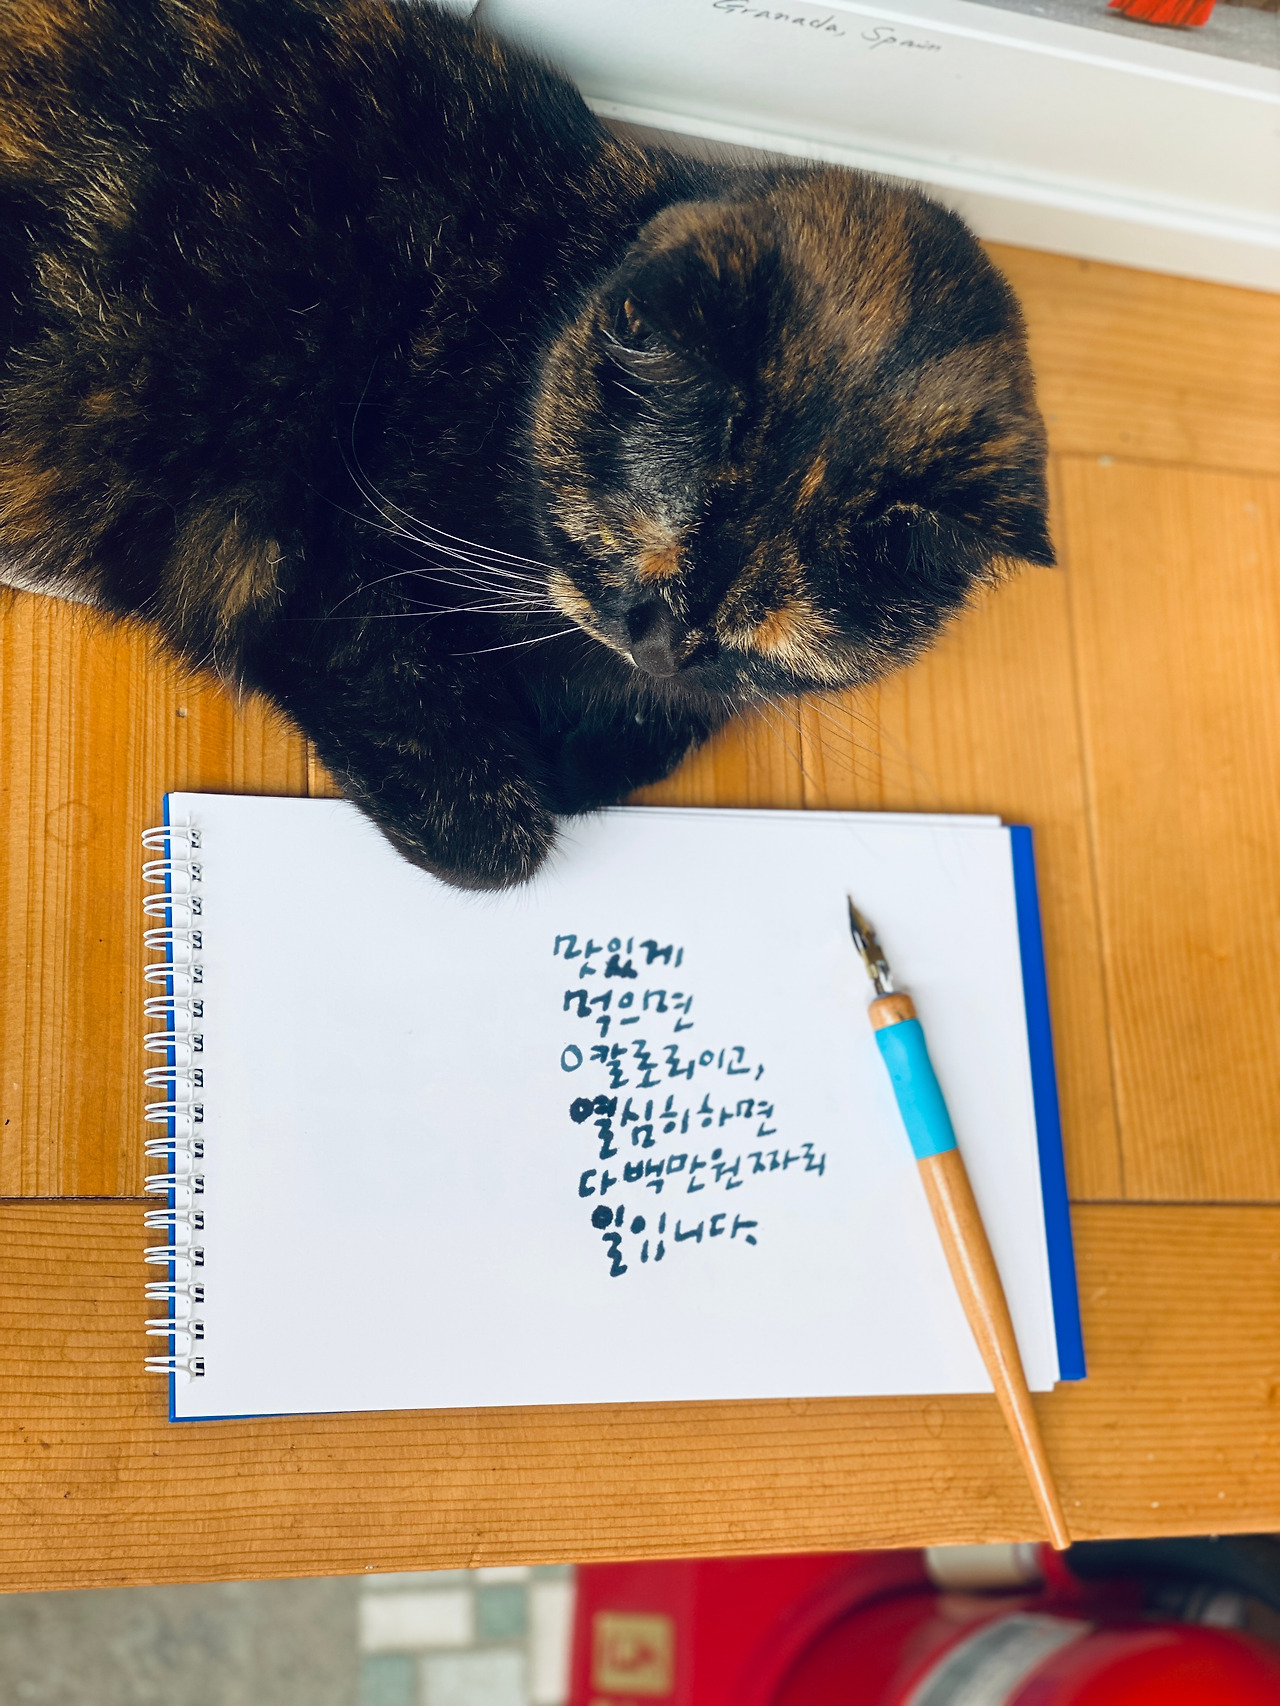 Granada, Spain
맛있게
먹으면
0칼로리이고,
열심히하면
다백만원짜리
일입니다.